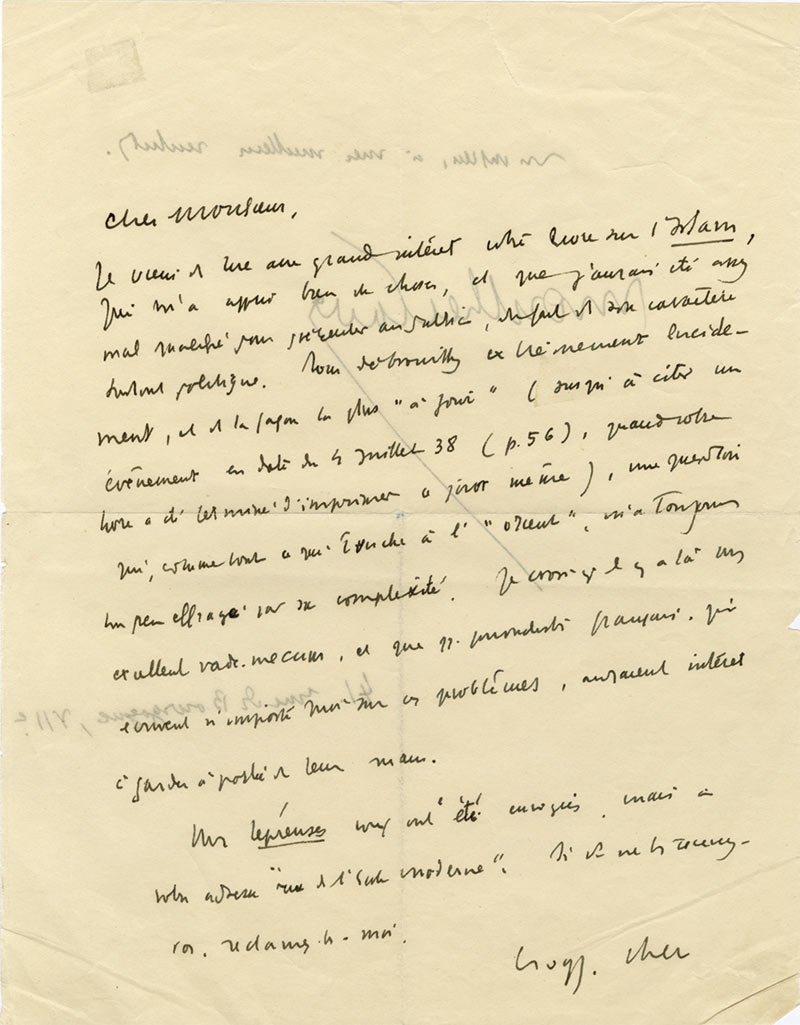 Cher Monsieur,
Je viens de lire avec grand intérêt votre livre sur l'Islam,
qui m'a appris bien de choses, et que j'aurais été assez
mal qualifié pour présenter au public, du fait de son caractère
surtout politique. Vous débrouillez extrêmement lucide-
ment, et de la façon la plus "à jour" (jusqu'à citer un
événement en date du 4 Juillet 38 (p.56), quand votre
livre a été terminé d'imprimer ce jour même), une question
qui, comme tout ce qui touche à l'"orient", m'a toujours
un peu effrayé par sa complexité. Je crois qu'il y a là un
excellent vade-mecum, et que les journalistes français, qui
écrivent n'importe quoi sur ces problèmes, auraient intérêt
à garder à portée de leur main.
Mes lépreuses vous ont été envoyées, mais à
votre adresse "rue de l'Ecole moderne". Si vs ne les receviez
pas, réclamez-les-moi.
Croyez, cher
Monsieur, à mes meilleurs
Montherlant
41 rue de Bourgogne, VIIe